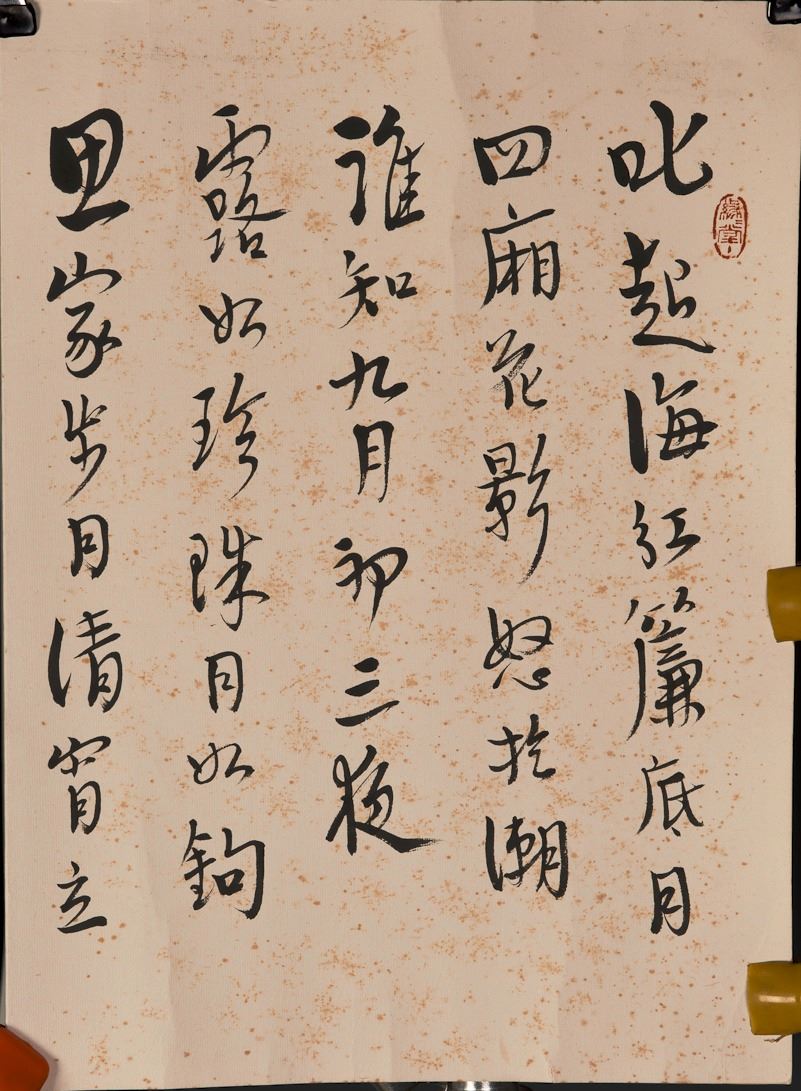 叱起海紅簾底月
四廂花影怒於潮
誰知九月初三夜
露如珍珠月如鉤
思家步月清宵立